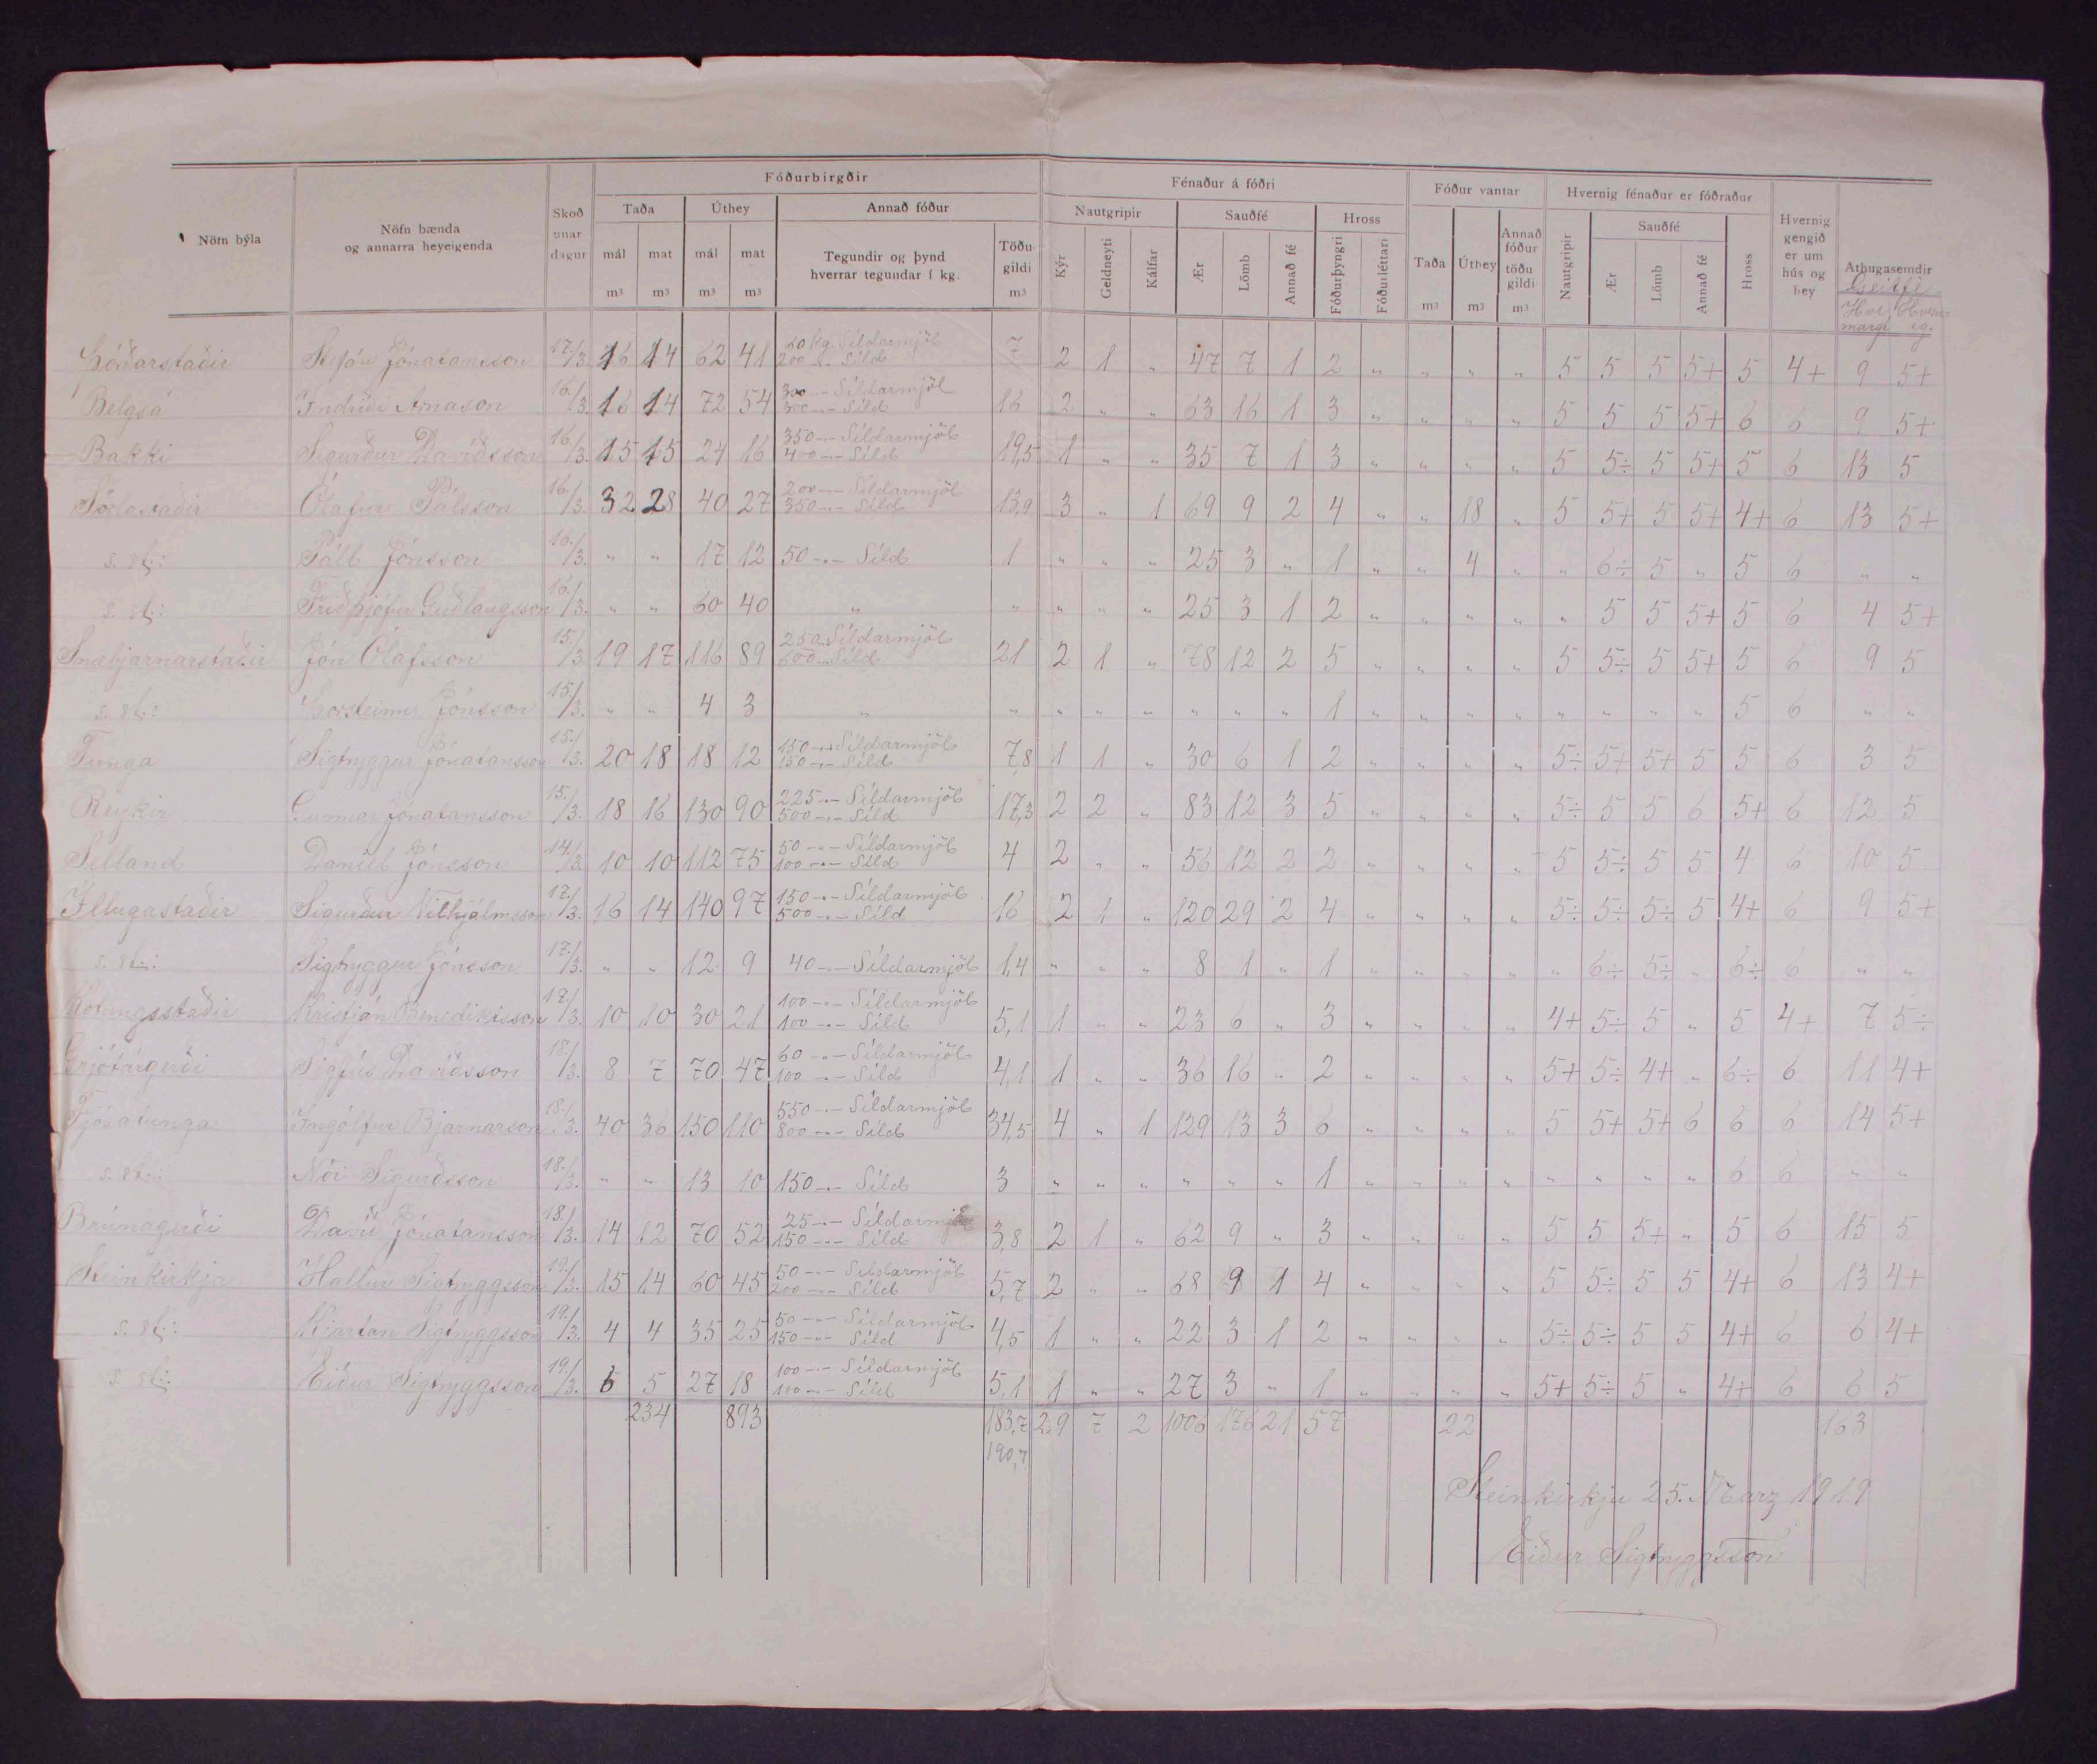 Fóðurbirgðir Fénaður á fóðri Fóður vantar Hvernig fénaður er fóðraður
Nöfn býla Nöfn bænda og annarra heyeigenda Skoðunardagur Taða Úthey Annað fóður Nautgripir Sauðfé Hross Taða Úthey Annað fóður töðugildi Nautgripir Sauðfé Hross Hvernig gengið er um hús og hey Athugasemdir
mál mat mál mat Tegundir og þynd hverrar tegundar í kg. Töðugildi Kýr Geldneyti Kálfar Ær Lömb Annað fé Fóðurþyngri Fóðurléttari Ær Lömb Annað fé Geitfé
m³ m³ m³ m³ m³ m³ m³ m³
Þórðarstaðir Stefán Jónatansson 17./3. 16 14 62 41 50 kg. Síldarmjöl 200 -"- Síld 7 2 1 " 47 7 1 2 " " " " 5 5 5 5+ 5 4+ 9 5+
Belgsá Indriði Arnason 16./3. 16 14 72 54 300 -"- Síldarmjöl 300 -"- Síld 16 2 " " 63 16 1 3 " " " " 5 5 5 5+ 6 6 9 5+
Bakki Sigurður Davíðsson 16./3. 15 15 24 16 350 -"- Síldarmjöl 400 -"- Síld 19,5 1 " " 35 7 1 3 " " " " 5 5÷ 5 5+ 5 6 13 5
Sörlastaðir Ólafur Pálsson 16./3. 32 28 40 27 200 -"- Síldarmjöl 350 -"- Síld 13,9 3 " 1 69 9 2 4 " " 18 " 5 5+ 5 5+ 4+ 6 13 5+
s. st.: Páll Jónsson 16./3. " " 17 12 50 -"- Síld 1 " " " 25 3 " 1 " " 4 " " 6÷ 5 " 5 6 " "
s. st.: Friðþjófur Guðlaugsson 16./3. " " 60 40 " " " " " 25 3 1 2 " " " " " 5 5 5+ 5 6 4 5+
Snæbjarnarstaðir Jón Ólafsson 15./3. 19 17 116 89 250 -"- Síldarmjöl 600 -"- Síld 21 2 1 " 78 12 2 5 " " " " 5 5÷ 5 5+ 5 6 9 5
s. st.: Þorsteinn Jónsson 15./3. " " 4 3 " " " " " " " " 1 " " " " " " " " 5 6 " "
Tunga Sigtryggur Jónatansson 15./3. 20 18 18 12 150 -"- Síldarmjöl 150 -"- Síld 7,8 1 1 " 30 6 1 2 " " " " 5÷ 5+ 5+ 5 5 6 3 5
Reykir Gunnar Jónatansson 15./3. 18 16 130 90 225 -"- Síldarmjöl 500 -"- Síld 17,3 2 2 " 83 12 3 5 " " " " 5÷ 5 5 6 5+ 6 12 5
Selland Daníel Jónsson 14./3. 10 10 112 75 50 -"- Síldarmjöl 100 -"- Síld 4 2 " " 56 12 2 2 " " " " 5 5÷ 5 5 4 6 10 5
Illugastaðir Sigurður Vilhjálmsson 17./3. 16 14 140 97 150 -"- Síldarmjöl 500 -"- Síld 16 2 1 " 120 29 2 4 " " " " 5÷ 5÷ 5÷ 5 4+ 6 9 5+
s. st.: Sigtryggur Jónsson 17./3. " " 12 9 40 -"- Síldarmjöl 1,4 " " " 8 1 " 1 " " " " " 6÷ 5÷ " 6÷ 6 " "
Kotungsstaðir Kristján Benediktsson 17./3. 10 10 30 21 100 -"- Síldarmjöl 100 -"- Síld 5,1 1 " " 23 6 " 3 " " " " 4+ 5÷ 5 " 5 4+ 7 5÷
Grjótárgerði Sigfús Davíðsson 18./3. 8 7 70 47 60 -"- Síldarmjöl 100 -"- Síld 4,1 1 " " 36 16 " 2 " " " " 5+ 5÷ 4+ " 6÷ 6 11 4+
Fjósatunga Ingólfur Bjarnarson 18./3. 40 36 150 110 550 -"- Síldarmjöl 800 -"- Síld 34,5 4 " 1 129 13 3 6 " " " " 5 5+ 5+ 6 6 6 14 5+
s. st.: Nói Sigurðsson 18./3. " " 13 10 150 -"- Síld 3 " " " " " " 1 " " " " " " " " 6 6 " "
Brúnagerði Davíð Jónatansson 18./3. 14 12 70 52 25 -"- Síldarmjöl 150 -"- Síld 3,8 2 1 " 62 9 " 3 " " " " 5 5 5+ " 5 6 15 5
Steinkirkja Hallur Sigtryggsson 19./3. 15 14 60 45 50 -"- Síldarmjöl 200 -"- Síld 5,7 2 " " 68 9 1 4 " " " " 5 5÷ 5 5 4+ 6 13 4+
s. st.: Kjartan Sigtryggsson 19./3. 4 4 35 25 50 -"- Síldarmjöl 150 -"- Síld 4,5 1 " " 22 3 1 2 " " " " 5÷ 5÷ 5 5 4+ 6 6 4+
s. st.: Eiður Sigtryggsson 19./3. 6 5 27 18 100 -"- Síldarmjöl 100 -"- Síld 5,1 1 " " 27 3 " 1 " " " " 5+ 5÷ 5 " 4+ 6 6 5
234 893 183,7 29 7 2 1006 176 21 57 22 163
190,7
Steinkirkju 25. Marz 1919
Eiður Sigtryggsson